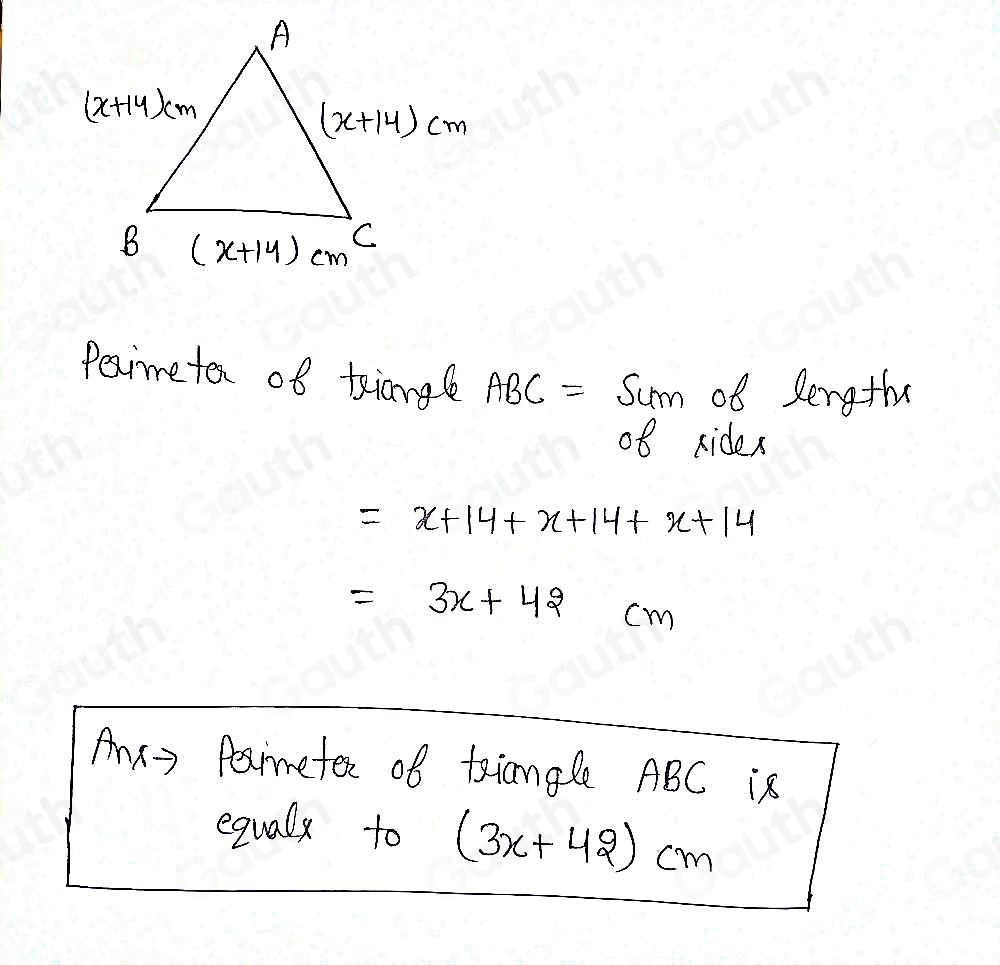 A
(x+14)cm
(x+14) cm
B
C
(x+14) cm
Perimeter of triangle ABC = Sum of lengths
of sides
= x+14+x+14+x+14
= 3x+42 cm
Ans→ Perimeter of triangle ABC is
equals to (3x+42) cm
Gauth